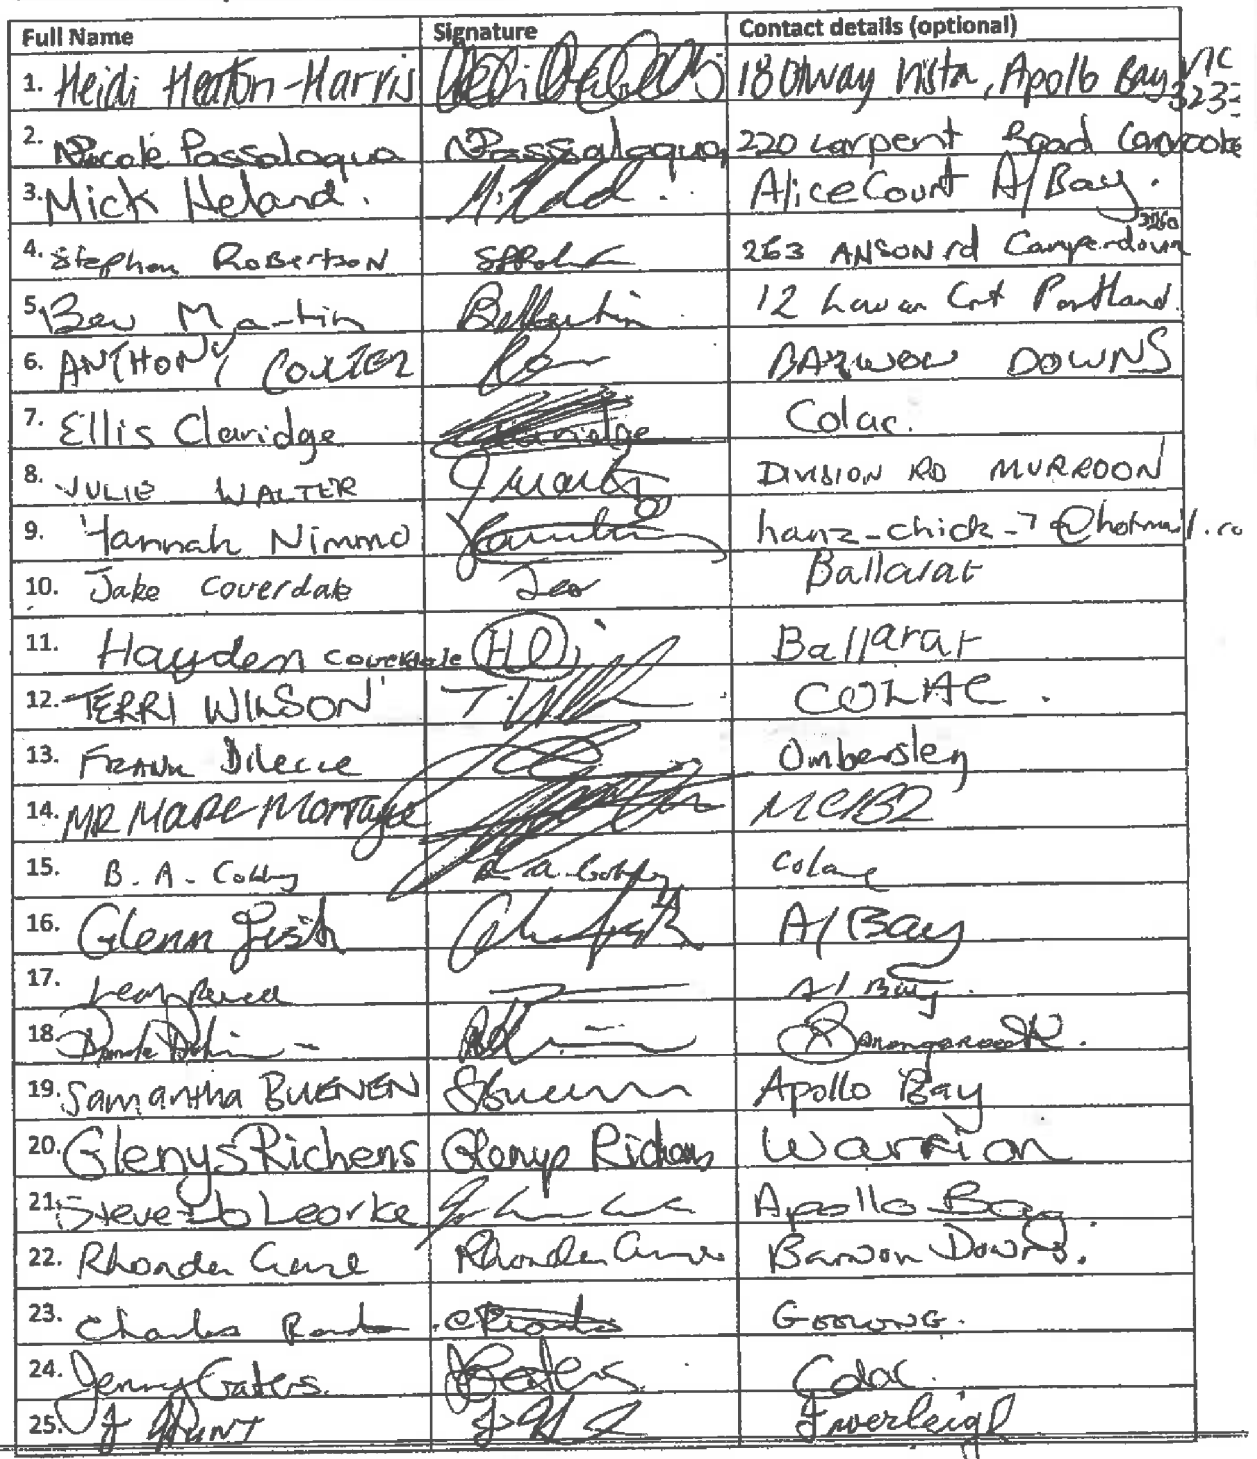 Full Name Signature Contact details (optional)
1. Heidi Heaton-Harris 18 Otway Vista, Apollo Bay VIC 323
2. Nicole Passalaqua NPassalaqua 220 Larpent Road
3. Mick Heland. Alice Court A/Bay.
4. Stephen Robertson 263 ANSON rd Camperdown 3260
5. Bev Martin 12 Crt Portland.
6. ANTHONY COULTER BARWON DOWNS
7. Ellis Claridge Claridge Colac.
8. JULIE WALTER DIVISION RD MURROON
9. Hannah Nimmo hanz_chick_7@hotmail.co
10. Jake Coverdale Ballarat
11. Hayden Coverdale HC Ballarat
12. TERRI WILSON COLAC.
13. FRANK Dilecce Ombersley
14. MR MARC
15. B. A. Colac
16. Glenn A/Bay
17. A/Bay.
18.
19. Samantha BUENEN Apollo Bay
20. Glenys Richens Glenys Richens Warrion
21. Steve Leorke Apollo Bay
22. Rhonda Rhonda Barwon Downs.
23. Charles
24. Jenny Gaters. JGaters. Colac.
25. J Hunt Inverleigh